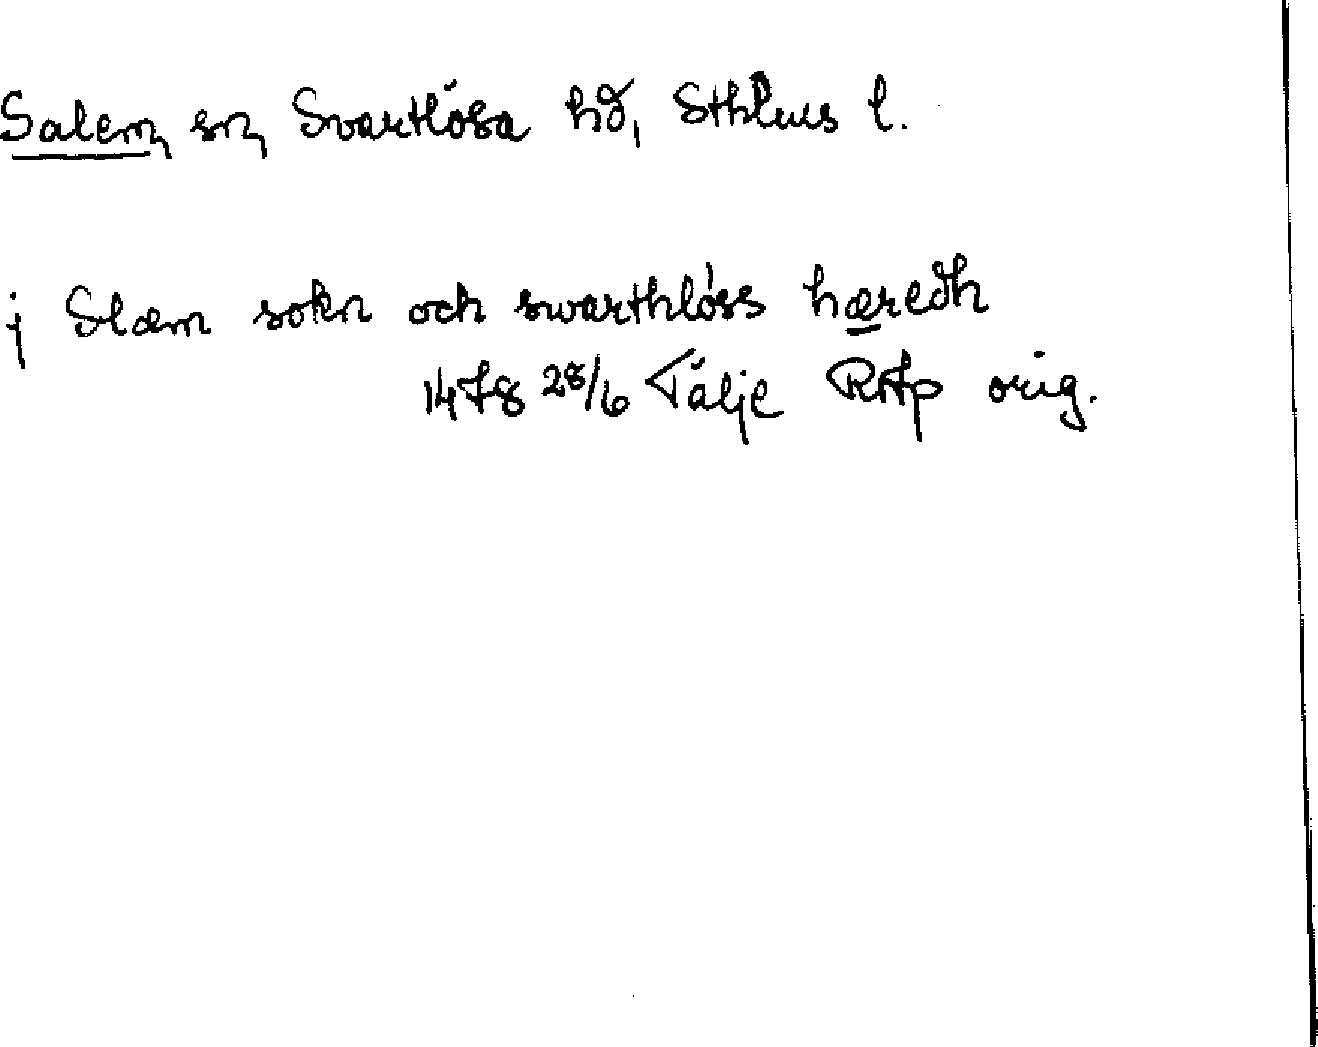 Salem, sn, Svartlösa hd, Sthlms l.
j Slæm sokn och swarthløss hæredh
1478 28/6 Tälje RAp orig.